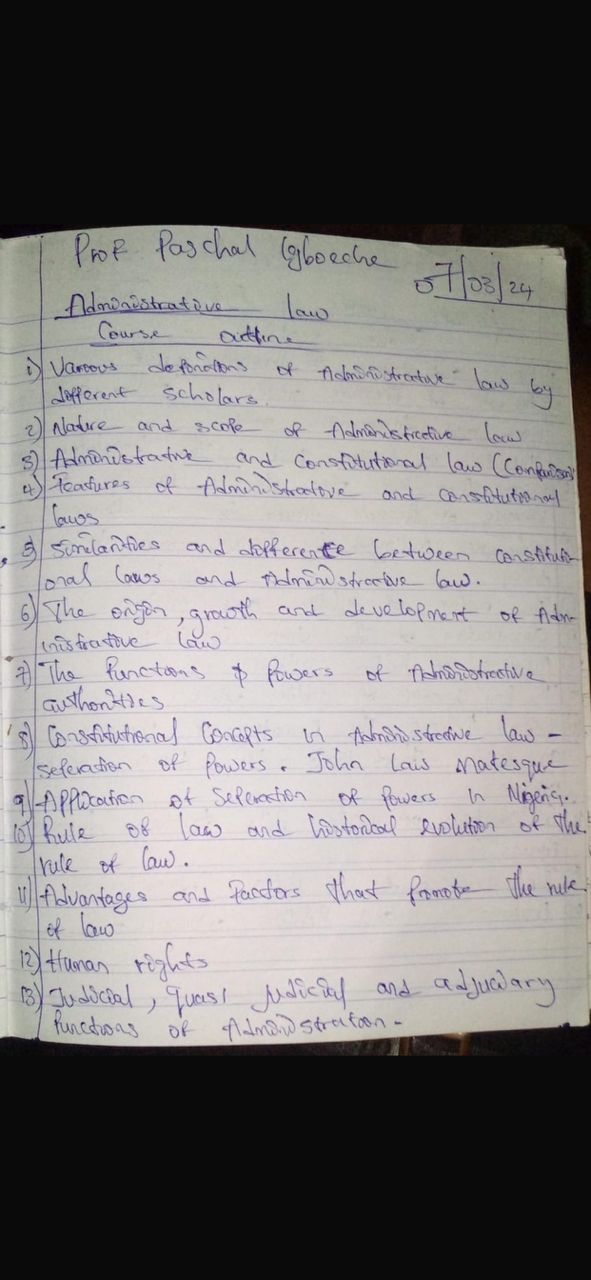 Prof Paschal Igboeche
07/03/24
Administrative law
Course outline
1) Various definitions of Administrative law by
different scholars.
2) Nature and scope of Administrative law
3) Administrative and Constitutional law (Comparison)
4) Features of Administrative and constitutional
laws
5) Similarities and difference between constituti-
onal laws and Administrative law.
6) The origin, growth and development of Admi-
nistrative law
7) The functions & powers of Administrative
authorities
8) Constitutional Concepts in Administrative law -
seperation of powers. John Lais Matesque
9) Application of Seperation of powers in Nigeria.
10) Rule of law and historical evolution of the
rule of law.
11) Advantages and factors that promote the rule
of law
12) Human rights
13) Judicial, quasi judicial and adjuciary
functions of Administration -